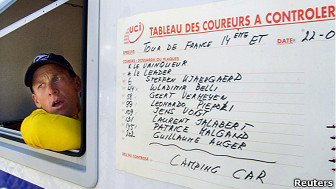 uci
TABLEAU DES COUREURS A CONTROLER
TOUR DE FRANCE 14ème ET DATE : 22-0
LE VAINQUEUR
LE LEADER
6 STEFFEN KJAERGAARD
WLADIMIR BELLI
58 GEERT VERHEYEN
99 LEONARDO PIEPOLI
109 JENS VOGT
131 LAURENT JALABERT
145 PATRICE HALGAND
GUILLAUME AUGER
CAMPING CAR
Reuters